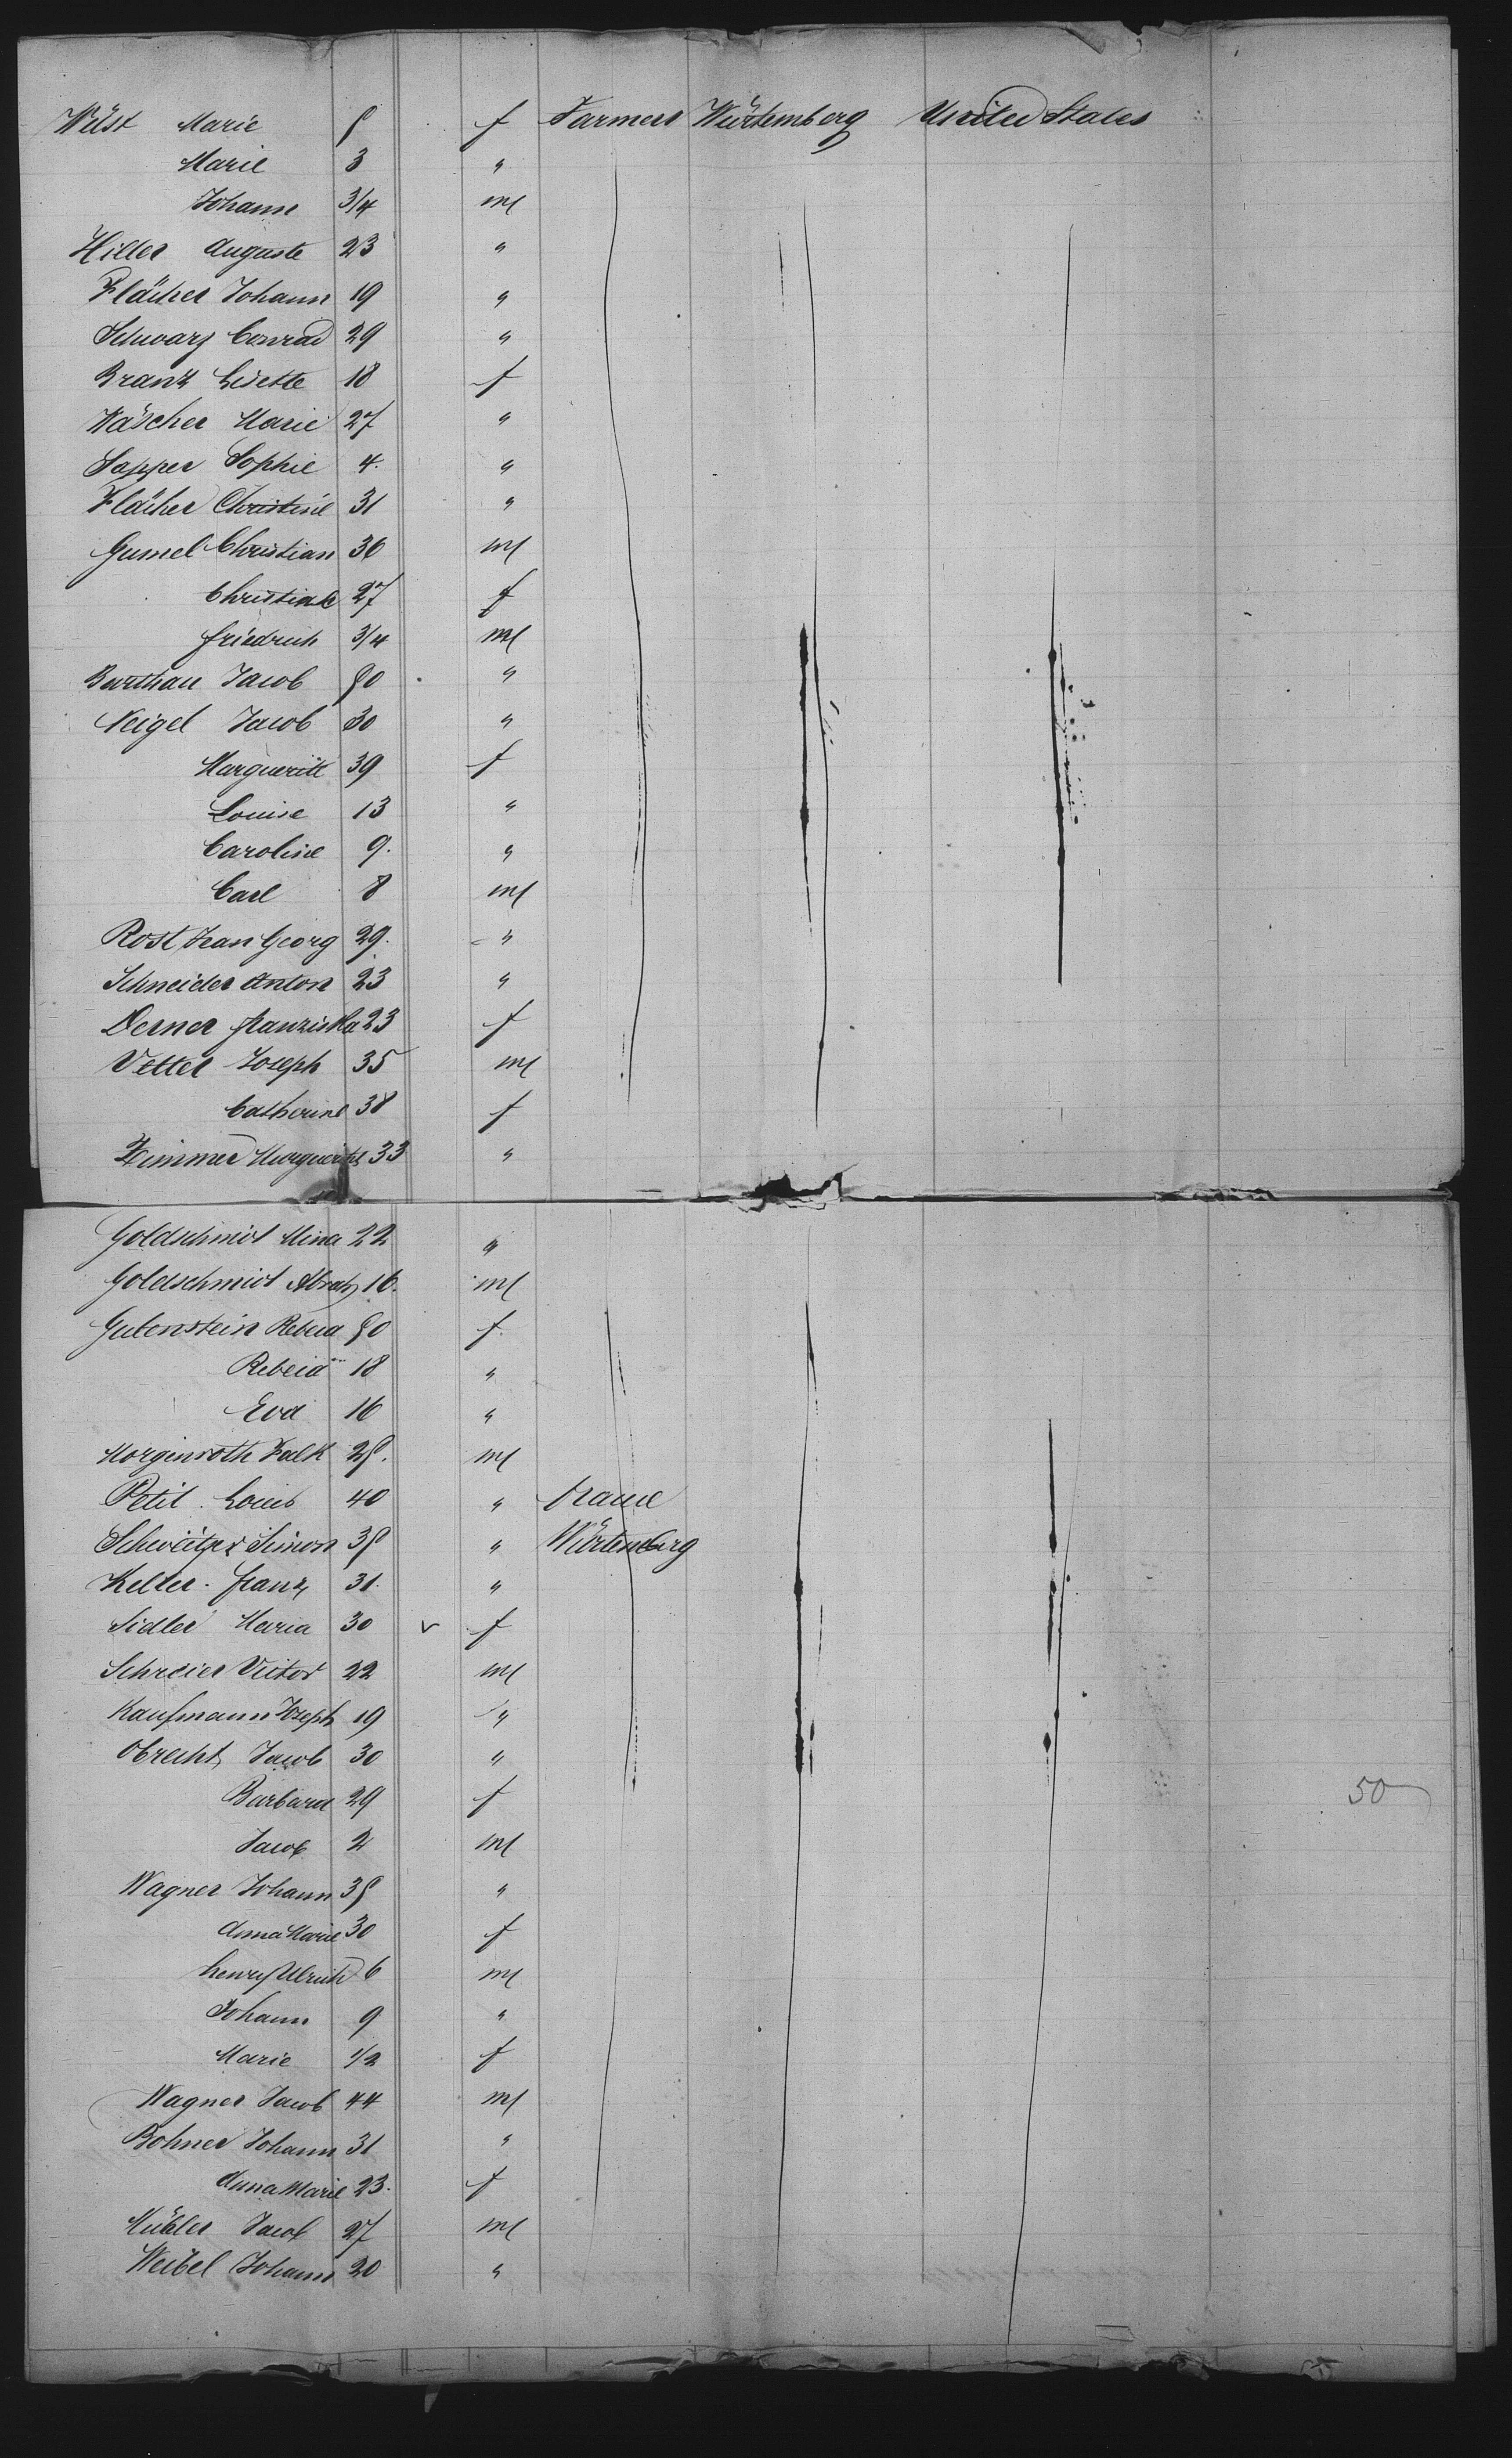 Wüst Marie 5 f Farmers Würtemberg United States
Marie 3 "
Johann 3/4 m
Hiller Auguste 23 "
Flächer Johann 19 "
Schwarz Conrad 29 "
Branz Lisette 18 f
Wäscher Marie 27 "
Sapper Sophie 4. "
Flächer Christine 31 "
Gumel Christian 36 m
Christiane 27 f
Friedrich 3/4 m
Barthau Jacob 50 "
Neigel Jacob 30 "
Margueritt 39 f
Louise 13 "
Caroline 9. "
Carl 8 m
Rost Jean Georg 29. "
Schneider Anton 23 "
Derner Franziska 23 f
Vetter Joseph 35 m
Catherine 38 f
Zimmer 33 "
Goldschmidt Mina 22 "
Goldschmidt Abrah 16. m
Gutenstein Rebeca 50 f
Rebeca 18 "
Eva 16 "
Morgenroth Falk 25. m
Petit Louis 40 "
Simon 35 " Würtemberg
Keller Franz 31. "
Sidler Maria 30 v f
Schreier Victor 22 m
Kaufmann Joseph 19 "
Obrecht Jacob 30 "
Barbara 29 f 50
Jacob 2 m
Wagner Johann 35 "
Anna Marie 30 f
Henry Ulrich 6 m
Johann 9 "
Marie 1/2 f
Wagner Jacob 44 m
Bohner Johann 31 "
Anna Marie 23. f
Mühler Jacob 27 m
Weibel Johann 20 "